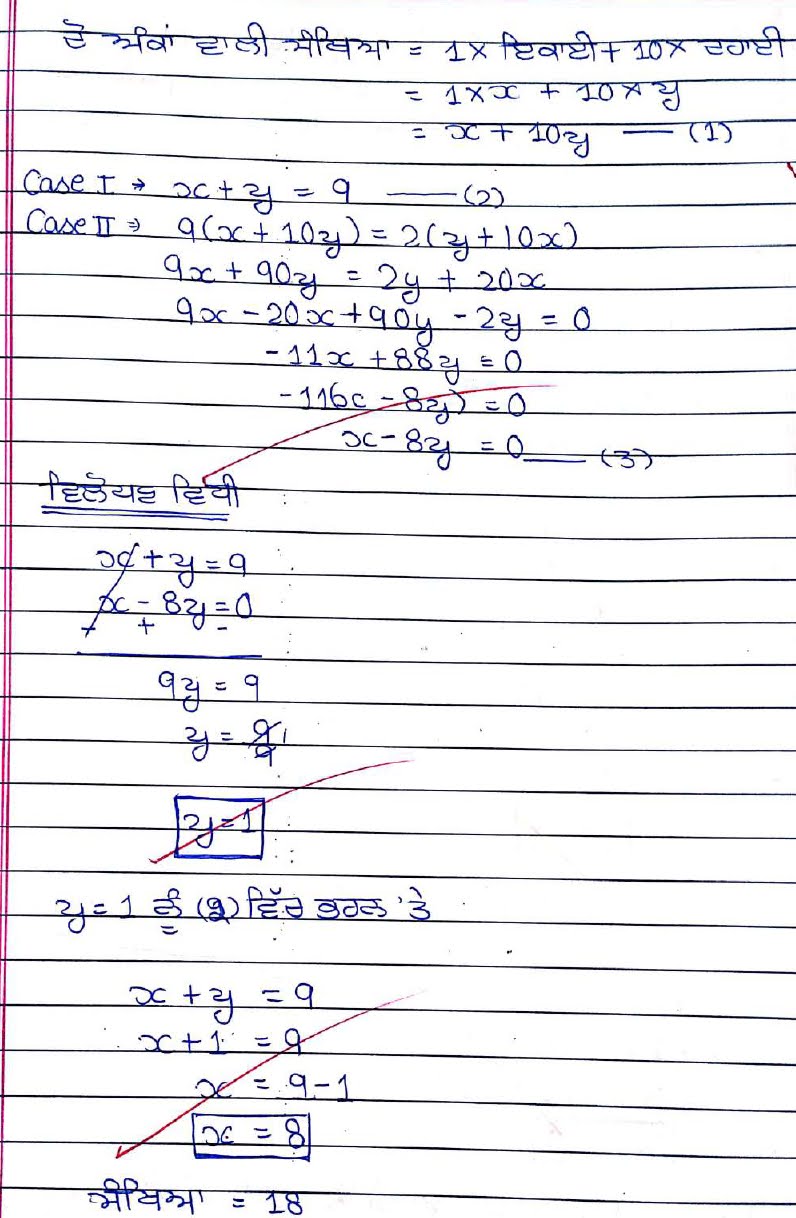 ਦੋ ਅੰਕਾਂ ਵਾਲੀ ਸੰਖਿਆ = 1 × ਇਕਾਈ + 10 × ਦਹਾਈ
= 1 × x + 10 × y
= x + 10y — (1)
Case I ⇒ x + y = 9 — (2)
Case II ⇒ 9(x + 10y) = 2(y + 10x)
9x + 90y = 2y + 20x
9x - 20x + 90y - 2y = 0
-11x + 88y = 0
-11(x - 8y) = 0
x - 8y = 0 — (3)
ਵਿਲੋਪਣ ਵਿਧੀ
x + y = 9
x - 8y = 0
- + -
9y = 9
y = 9/9 1
y = 1
y = 1 ਨੂੰ (2) ਵਿੱਚ ਭਰਨ 'ਤੇ
x + y = 9
x + 1 = 9
x = 9 - 1
x = 8
ਸੰਖਿਆ = 18